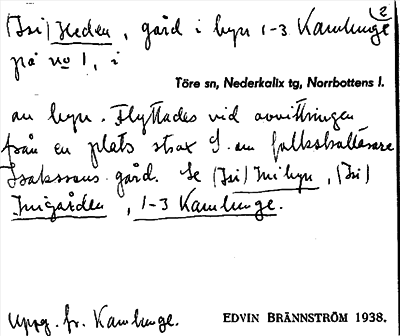 2
(I si) Heden, gård i byn 1-3 Kamlunge
på no 1, i
Töre sn, Nederkalix tg, Norrbottens l.
av byn. Flyttades vid avvittringen
från en plats strax S. om folkskollärare
Isakssons gård. Se (I si) Inibyn, (I si)
Inigården, 1-3 Kamlunge.
Uppg. fr. Kamlunge.
EDVIN BRÄNNSTRÖM 1938.